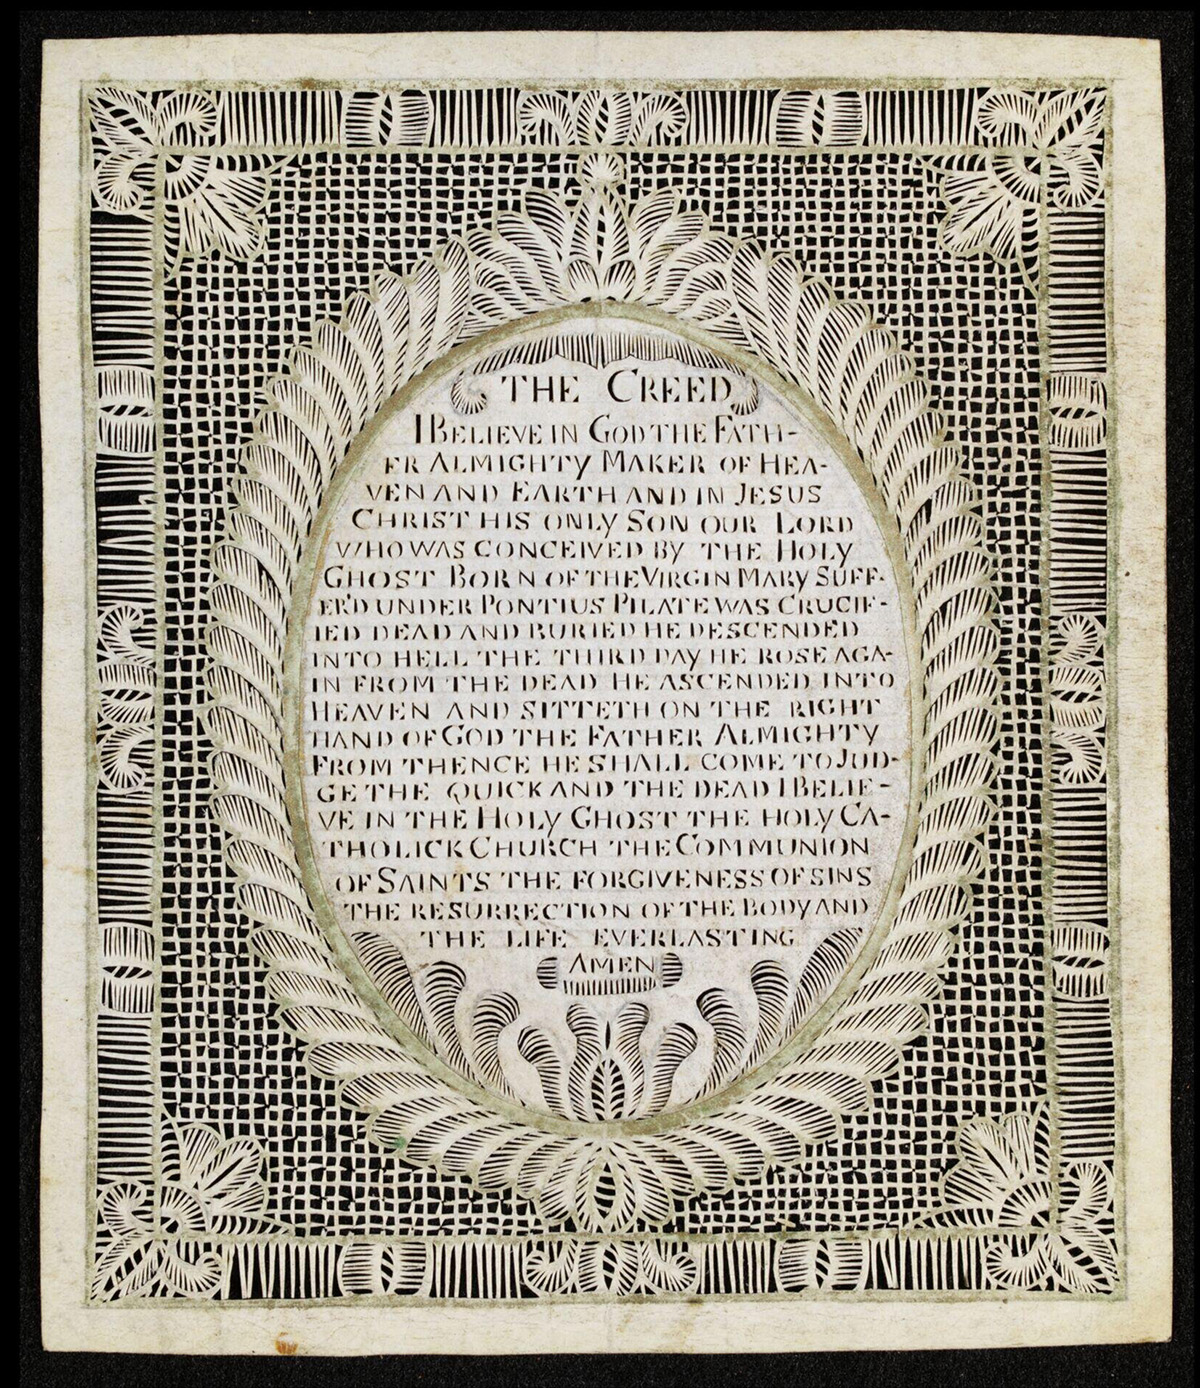 THE CREED
I BELIEVE IN GOD THE FATH-
ER ALMIGHTY MAKER OF HEA-
VEN AND EARTH AND IN JESUS
CHRIST HIS ONLY SON OUR LORD
WHO WAS CONCEIVED BY THE HOLY
GHOST BORN OF THE VIRGIN MARY SUFF-
ER'D UNDER PONTIUS PILATE WAS CRUCIF-
IED DEAD AND BURIED HE DESCENDED
INTO HELL THE THIRD DAY HE ROSE AGA-
IN FROM THE DEAD HE ASCENDED INTO
HEAVEN AND SITTETH ON THE RIGHT
HAND OF GOD THE FATHER ALMIGHTY
FROM THENCE HE SHALL COME TO JUD-
GE THE QUICK AND THE DEAD I BELIE-
VE IN THE HOLY GHOST THE HOLY CA-
THOLICK CHURCH THE COMMUNION
OF SAINTS THE FORGIVENESS OF SINS
THE RESURRECTION OF THE BODY AND
THE LIFE EVERLASTING
AMEN